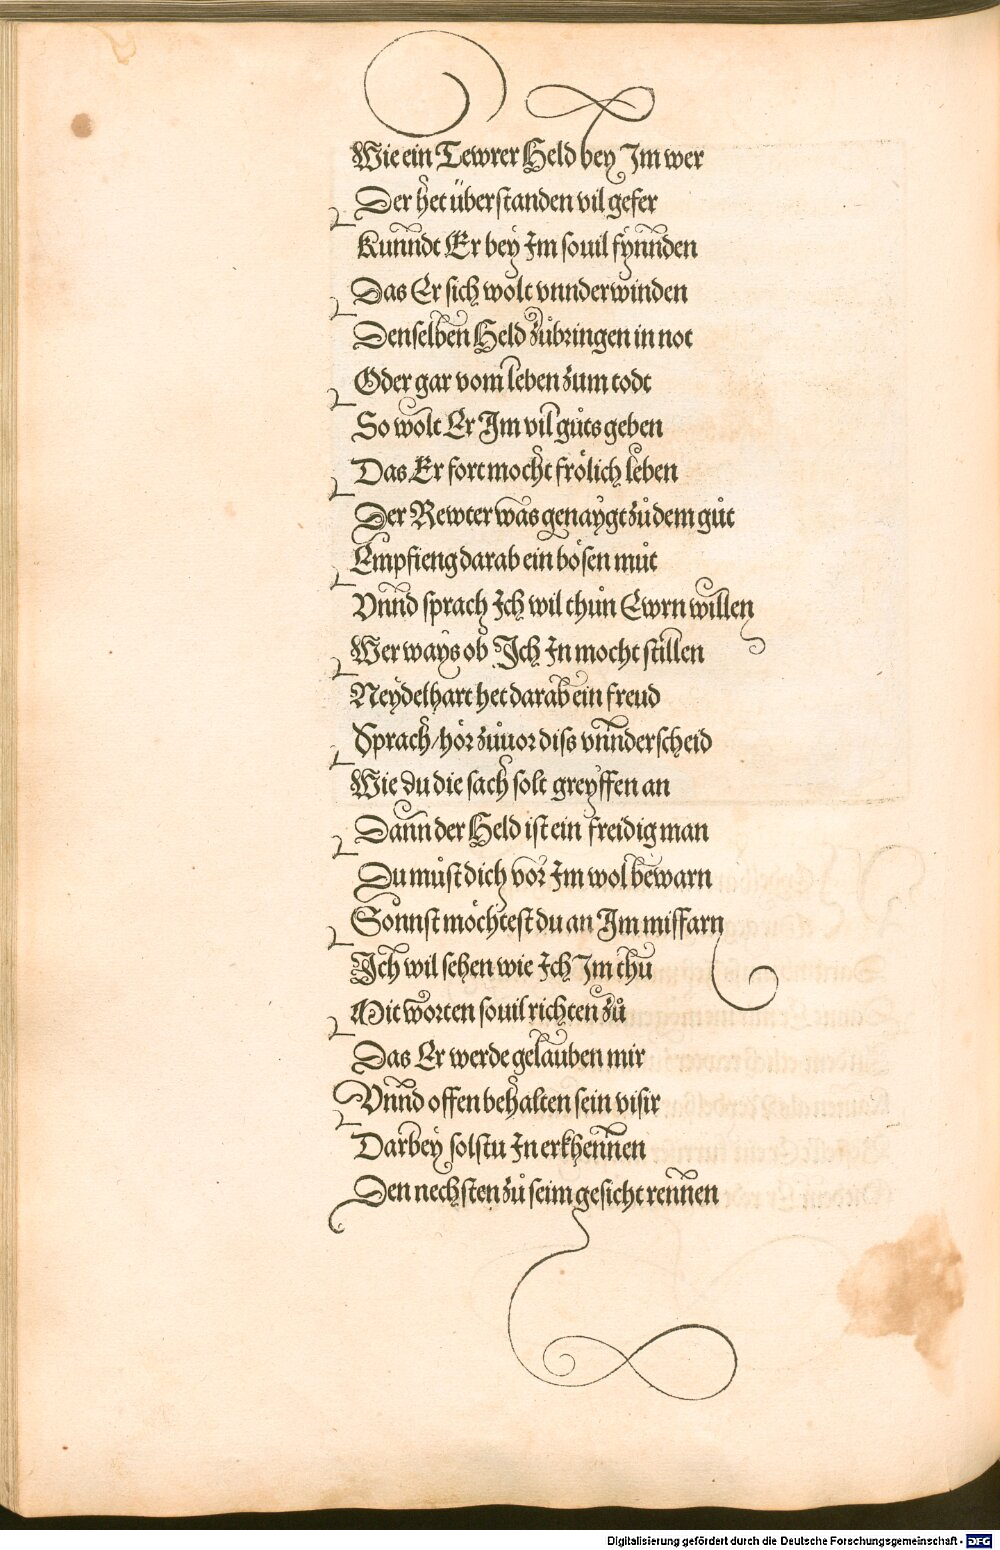 Wie ein Tewrer Held bey Im wer
Der het überstanden vil gefer
Kunndt Er bey Im souil fynnden
Das Er sich wolt vnnderwinden
Denselben Held zůbringen in not
Oder gar vom leben zum todt
So wolt Er Im vil gůts geben
Das Er fort mocht frölich leben
Der Rewter was genaygt zů dem gůt
Empfieng darab ein bösen můt
Vnnd sprach Ich wil thůn Ewrn willen
Wer ways ob Ich In mocht stillen
Neydelhart het darab ein freud
Sprach/hör zůuor diss vnnderscheid
Wie du die sach solt greyffen an
Dann der Held ist ein freidig man
Du můst dich vor Im wol bewarn
Sonnst möchtest du an Im missfarn
Ich wil sehen wie Ich Im thu
Mit worten souil richten zů
Das Er werde gelauben mir
Vnnd offen behalten sein visir
Darbey solstu In erkhennen
Den nechsten zů seim gesicht rennen
Digitalisierung gefördert durch die Deutsche Forschungsgemeinschaft - DFG